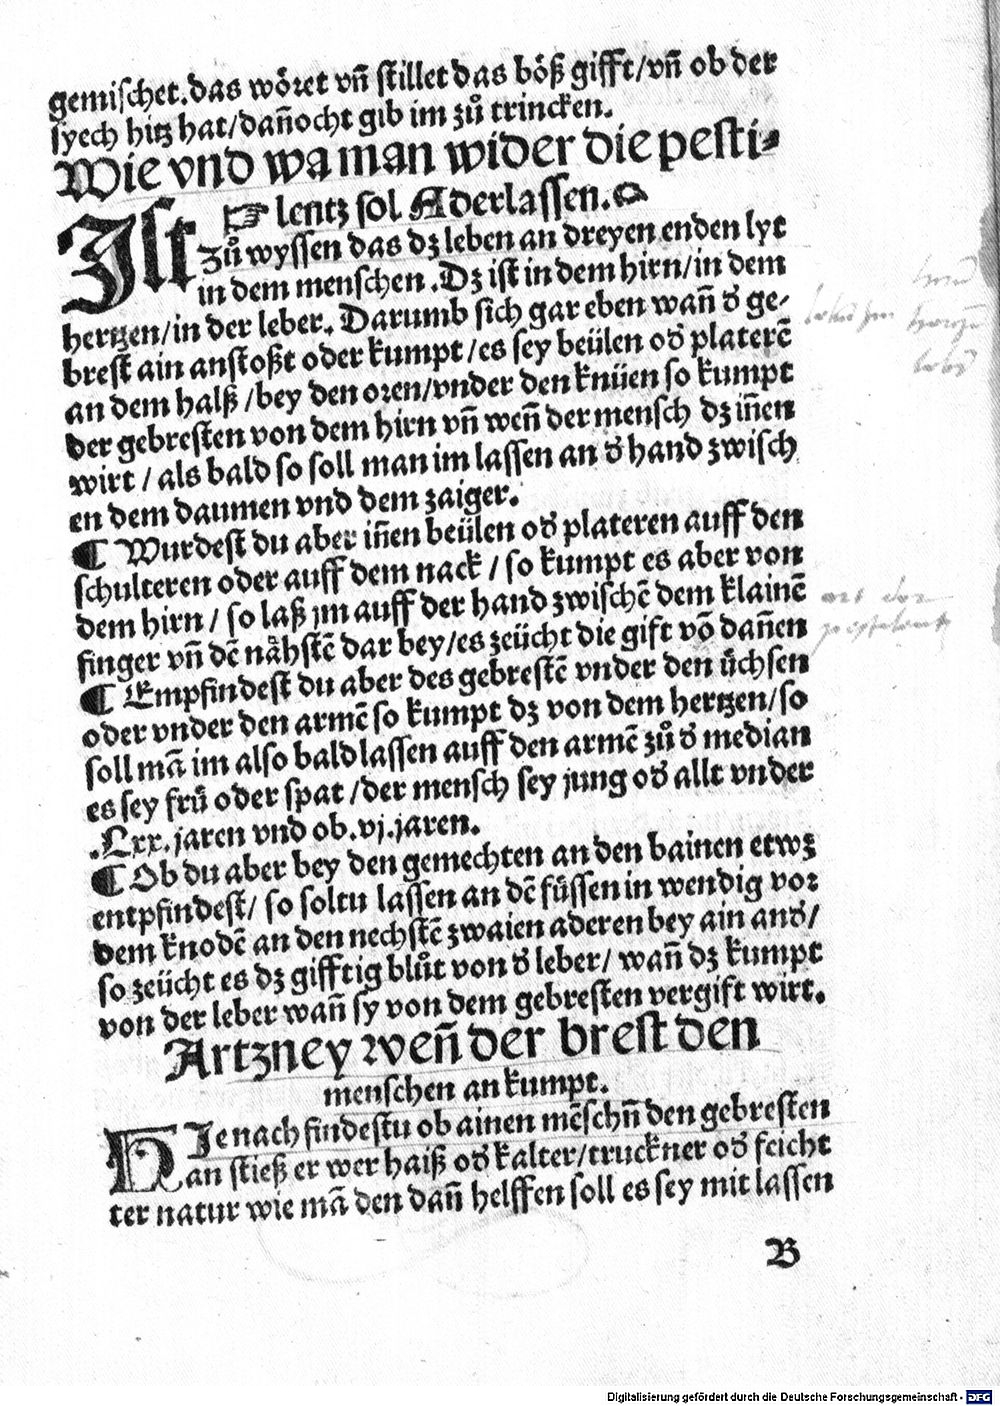 gemischet. das wöret vn̄ stillet das böß gifft/vn̄ ob der
syech hitz hat/dañocht gib im zů trincken.
Wie vnd wa man wider die pesti⸗
☞ lentz sol Aderlassen.
Ist zů wyssen das dz leben an dreyen enden lyt
in dem menschen. Dz ist in dem hirn/in dem
hertzen/in der leber. Darumb sich gar eben wañ d' ge⸗
brest ain anstoßt oder kumpt/es sey beülen od' platerē
an dem halß/bey den oren/vnder den knüen so kumpt
der gebresten von dem hirn vn̄ weñ der mensch dz iñen
wirt / als bald so soll man im lassen an d' hand zwisch
en dem daumen vnd dem zaiger.
¶ Wurdest du aber iñen beülen od' plateren auff den
schulteren oder auff dem nack / so kumpt es aber von
dem hirn / so laß jm auff der hand zwischē dem klainē
finger vn̄ dē nåhstē dar bey/es zeücht die gift vō dañen
¶ Empfindest du aber des gebrestē vnder den üchsen
oder vnder den armē so kumpt dz von dem hertzen/so
soll mā im also bald lassen auff den armē zů d' median
es sey frů oder spat /der mensch sey jung od' allt vnder
.Lxx. jaren vnd ob .vj. jaren.
¶ Ob du aber bey den gemechten an den bainen etwz
entpfindest/ so soltu lassen an dē füssen in wendig vor
dem knodē an den nechstē zwaien aderen bey ain and'/
so zeücht es dz gifftig blůt von d' leber/ wañ dz kumpt
von der leber wañ sy von dem gebresten vergift wirt.
Artzney weñ der brest den
menschen an kumpt.
DIe nach findestu ob ainen mēschñ den gebresten
an stieß er wer haiß od' kalter/truckner od' feicht
ter natur wie mā den dañ helffen soll es sey mit lassen
B
Digitalisierung gefördert durch die Deutsche Forschungsgemeinschaft - DFG